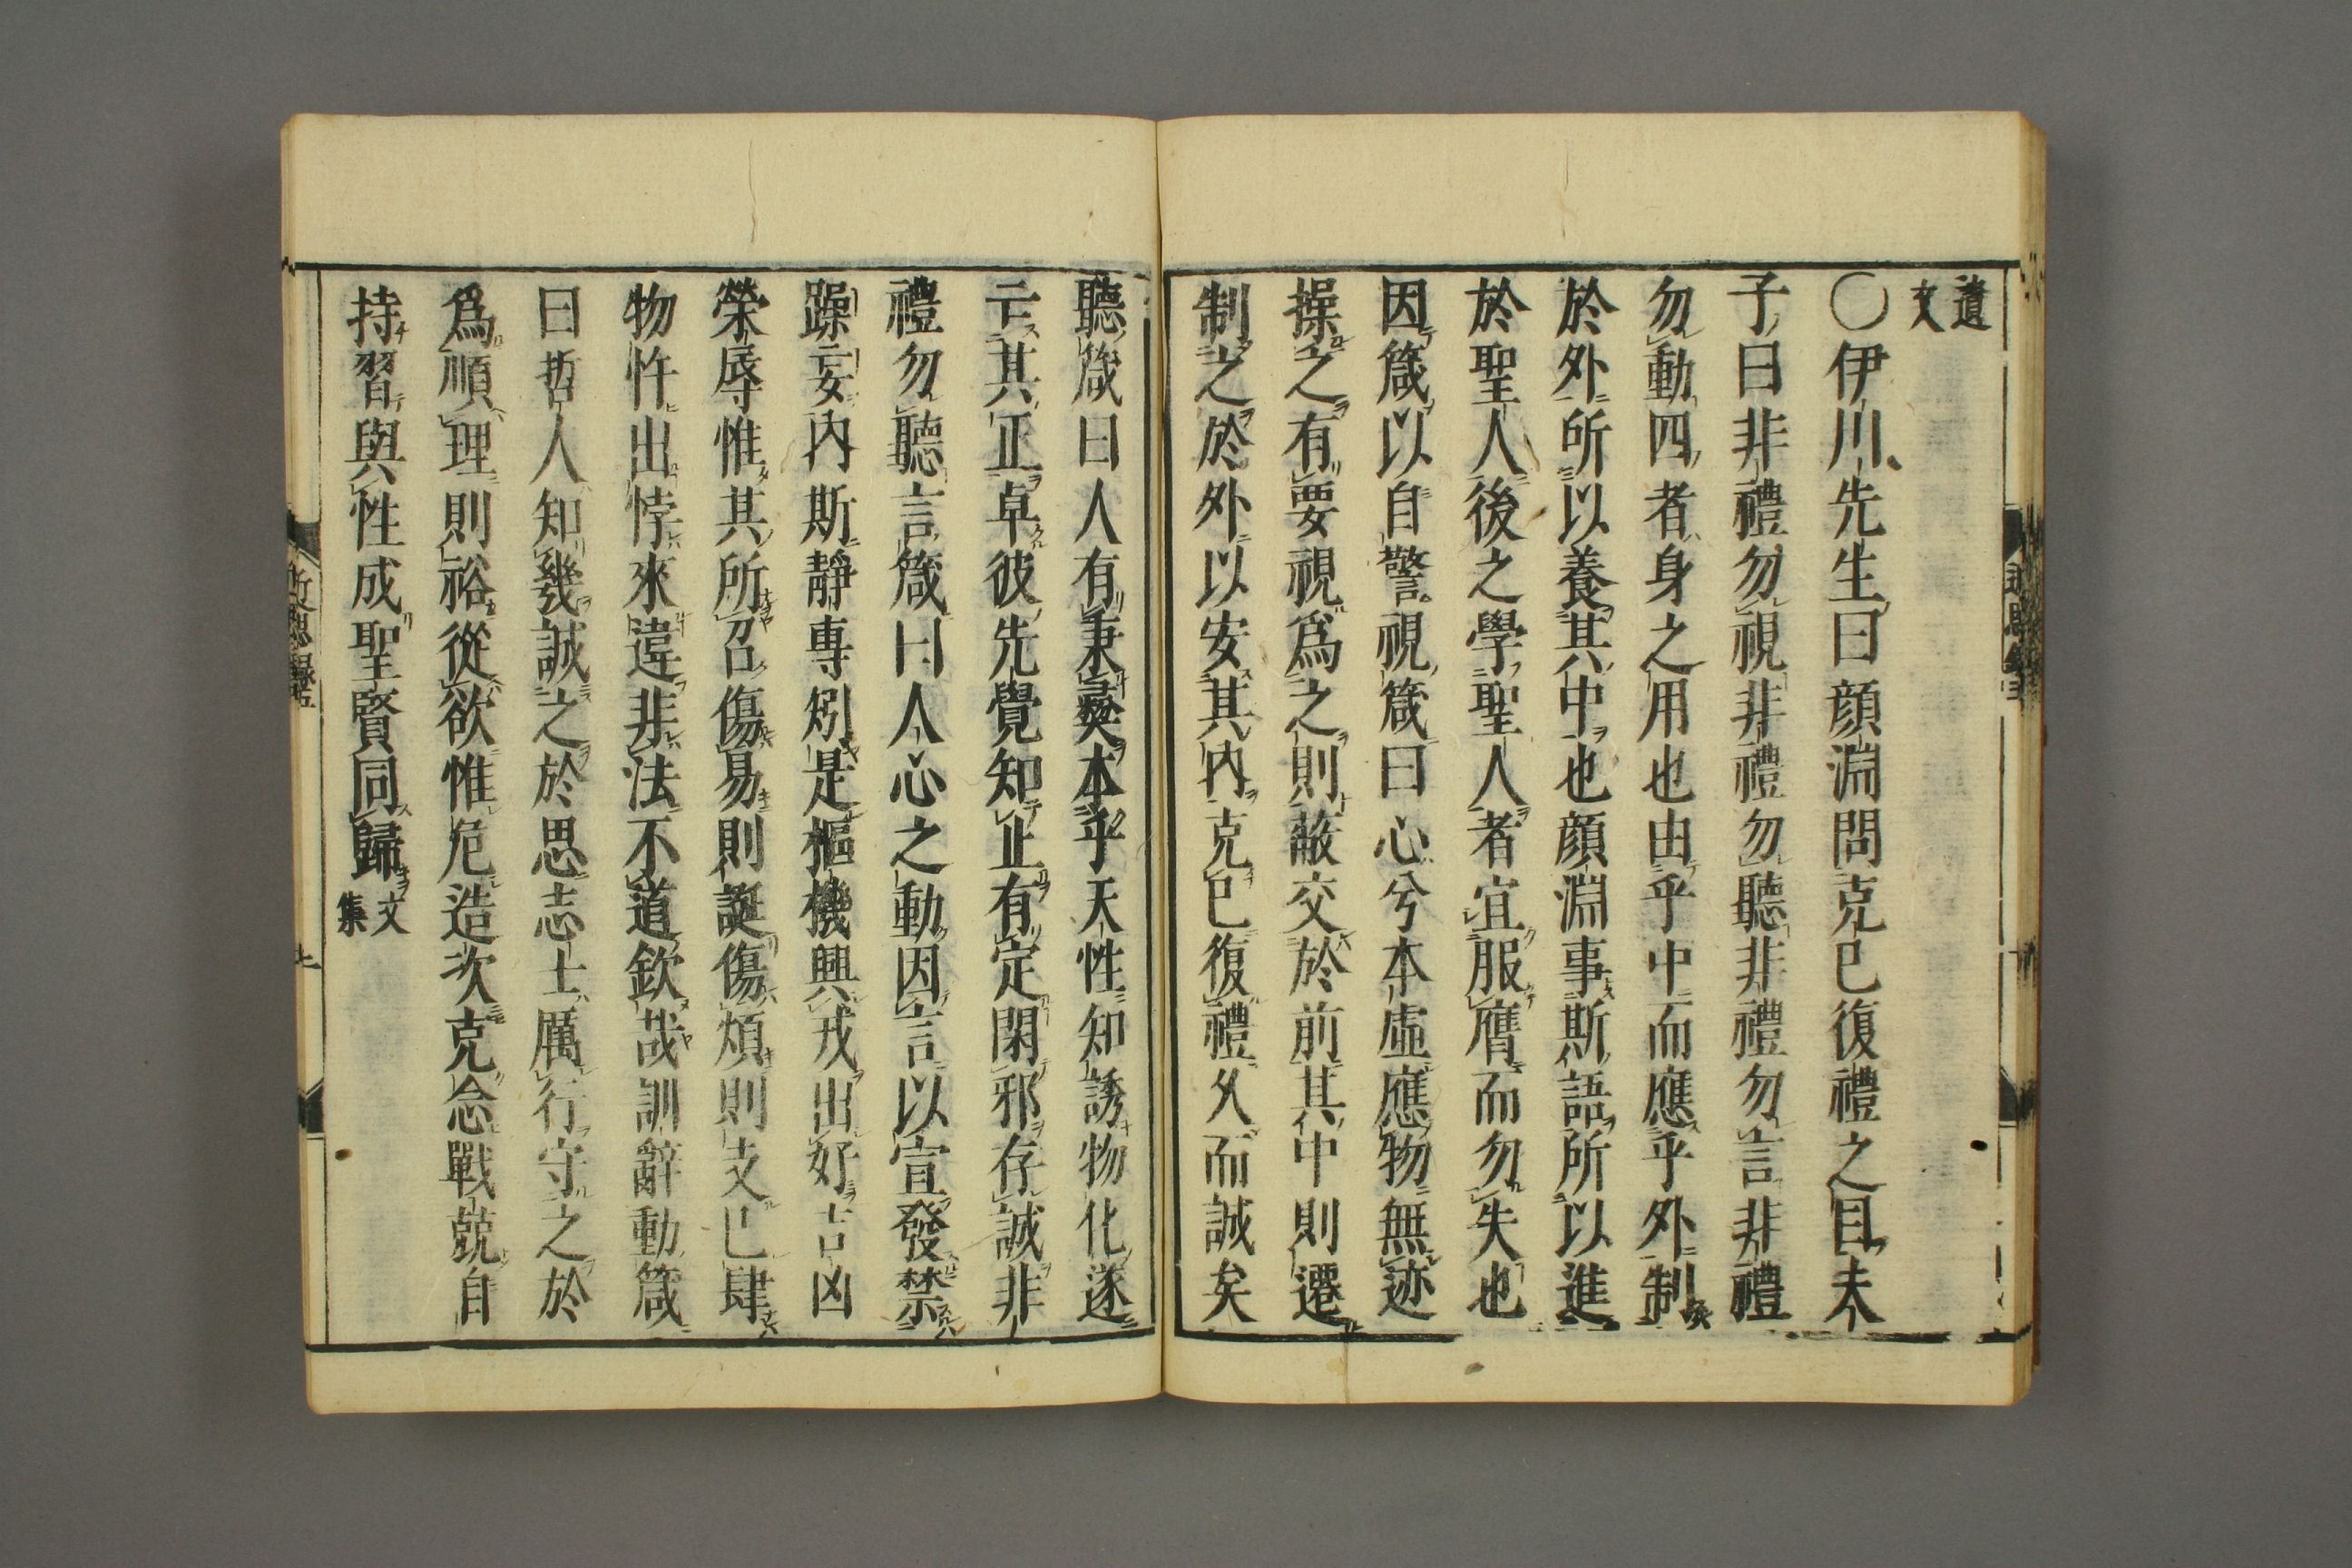 遺文
〇伊川先生曰顔淵問克已復禮之目夫
子曰非禮勿視非禮勿聽非禮勿言非禮
勿動四者身之用也由乎中而應乎外制
於外所以養其中也顔淵事斯語所以進
於聖人後之學聖人者宜服膺而勿失也
因箴以自警視箴曰心兮本虛應物無迹
操之有要視爲之則蔽交於前其中則遷
制之於外以安其内克已復禮久而誠矣
聽箴曰人有秉彝本乎天性知誘物化遂
亡其正卓彼先覺知止有定閑邪存誠非
禮勿聽言箴曰人心之動因言以宣發禁
躁妄内斯靜專矧是樞機興戎出好吉凶
榮辱惟其所召傷易則誕傷煩則支已肆
物忤出悖來違非法不道欽哉訓辭動箴
曰哲人知幾誠之於思志士厲行守之於
爲順理則裕從欲惟危造次克念戰兢自
持習與性成聖賢同歸文集
近思録